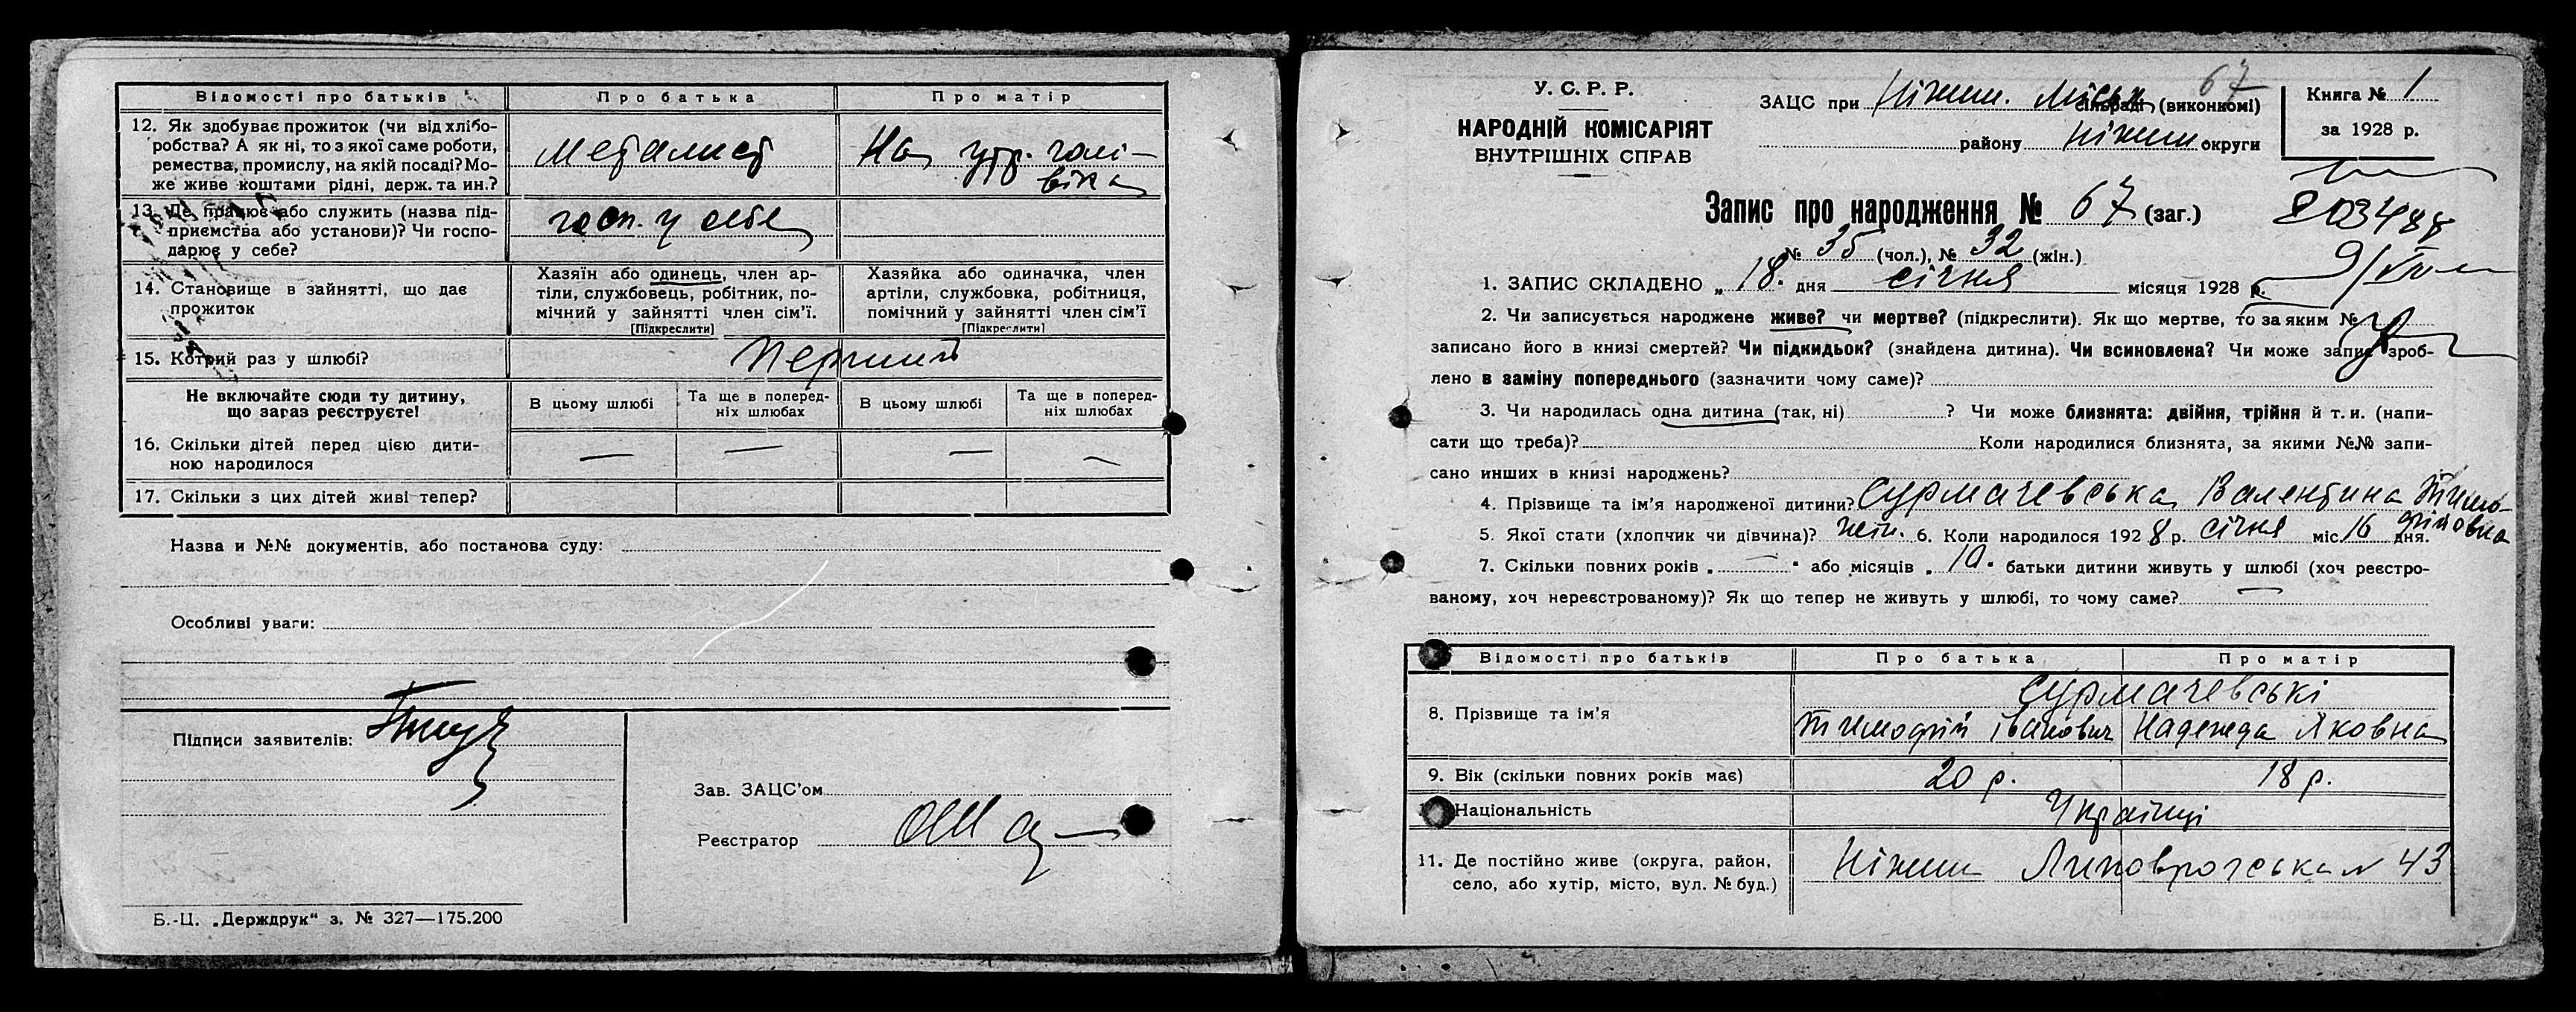 Відомості про батьків Про батька Про матір
12. Як здобуває прожиток (чи від хлібо-
робства? А як ні, то з якої саме роботи,
ремества, промислу, на якій посаді? Мо-
же живе коштами рідні, держ. та ин.?
металист
На утр. чолі-
віка
13. Де працює або служить (назва під-
приємства або установи)? Чи госпо-
дарює у себе?
госп. у себе
14. Становище в зайнятті, що дає
прожиток
Хазяїн або одинець, член ар-
тіли, службовець, робітник, по-
мічний у зайнятті член сім'ї.
[Підкреслити]
Хазяйка або одиначка, член
артіли, службовка, робітниця,
помічний у зайнятті член сім'ї
[Підкреслити]
15. Котрий раз у шлюбі? Перший
Не включайте сюди ту дитину,
що зараз реєструєте!
В цьому шлюбі
Та ще в поперед-
ніх шлюбах
В цьому шлюбі
Та ще в поперед-
ніх шлюбах
16. Скільки дітей перед цією дити-
ною народилося
— — — —
17. Скільки з цих дітей живі тепер?
Назва и №№ документів, або постанова суду:
Особливі уваги:
Підписи заявителів:
Зав. ЗАЦС'ом
Реєстратор
Б.-Ц. „Держдрук“ з. № 327—175.200
У. С. Р. Р.
НАРОДНІЙ КОМІСАРІЯТ
ВНУТРІШНІХ СПРАВ
67
ЗАЦС при Ніжин. Міськ сільраді (виконкомі)
району Ніжин округи
Книга № 1
за 1928 р.
Запис про народження № 67 (заг.)
№ 35 (чол.), № 32 (жін.)
1. ЗАПИС СКЛАДЕНО „ 18. дня січня місяця 1928 р.
2. Чи записується народжене живе? чи мертве? (підкреслити). Як що мертве, то за яким №
записано його в книзі смертей? Чи підкидьок? (знайдена дитина). Чи всиновлена? Чи може запис зроб-
лено в заміну попереднього (зазначити чому саме)?
3. Чи народилась одна дитина (так, ні) ? Чи може близнята: двійня, трійня й т. и. (напи-
сати що треба)? Коли народилися близнята, за якими №№ запи-
сано инших в книзі народжень?
4. Прізвище та ім'я народженої дитини? Сурмачевська Валентина Тимо-
фіївна
5. Якої статі (хлопчик чи дівчина)? жін. 6. Коли народилося 1928 р. січня міс. 16 дня.
7. Скільки повних років „ — “ або місяців „ 10. батьки дитини живуть у шлюбі (хоч реєстро-
ваному, хоч нереєстрованому)? Як що тепер не живуть у шлюбі, то чому саме? —
Відомості про батьків Про батька Про матір
Сурмачевські
8. Прізвище та ім'я Тимофій Іванович Надежда Яковна
9. Вік (скільки повних років має) 20 р. 18 р.
Національність Українці
11. Де постійно живе (округа, район,
село, або хутір, місто, вул. № буд.)
Ніжин Липоврогська № 43